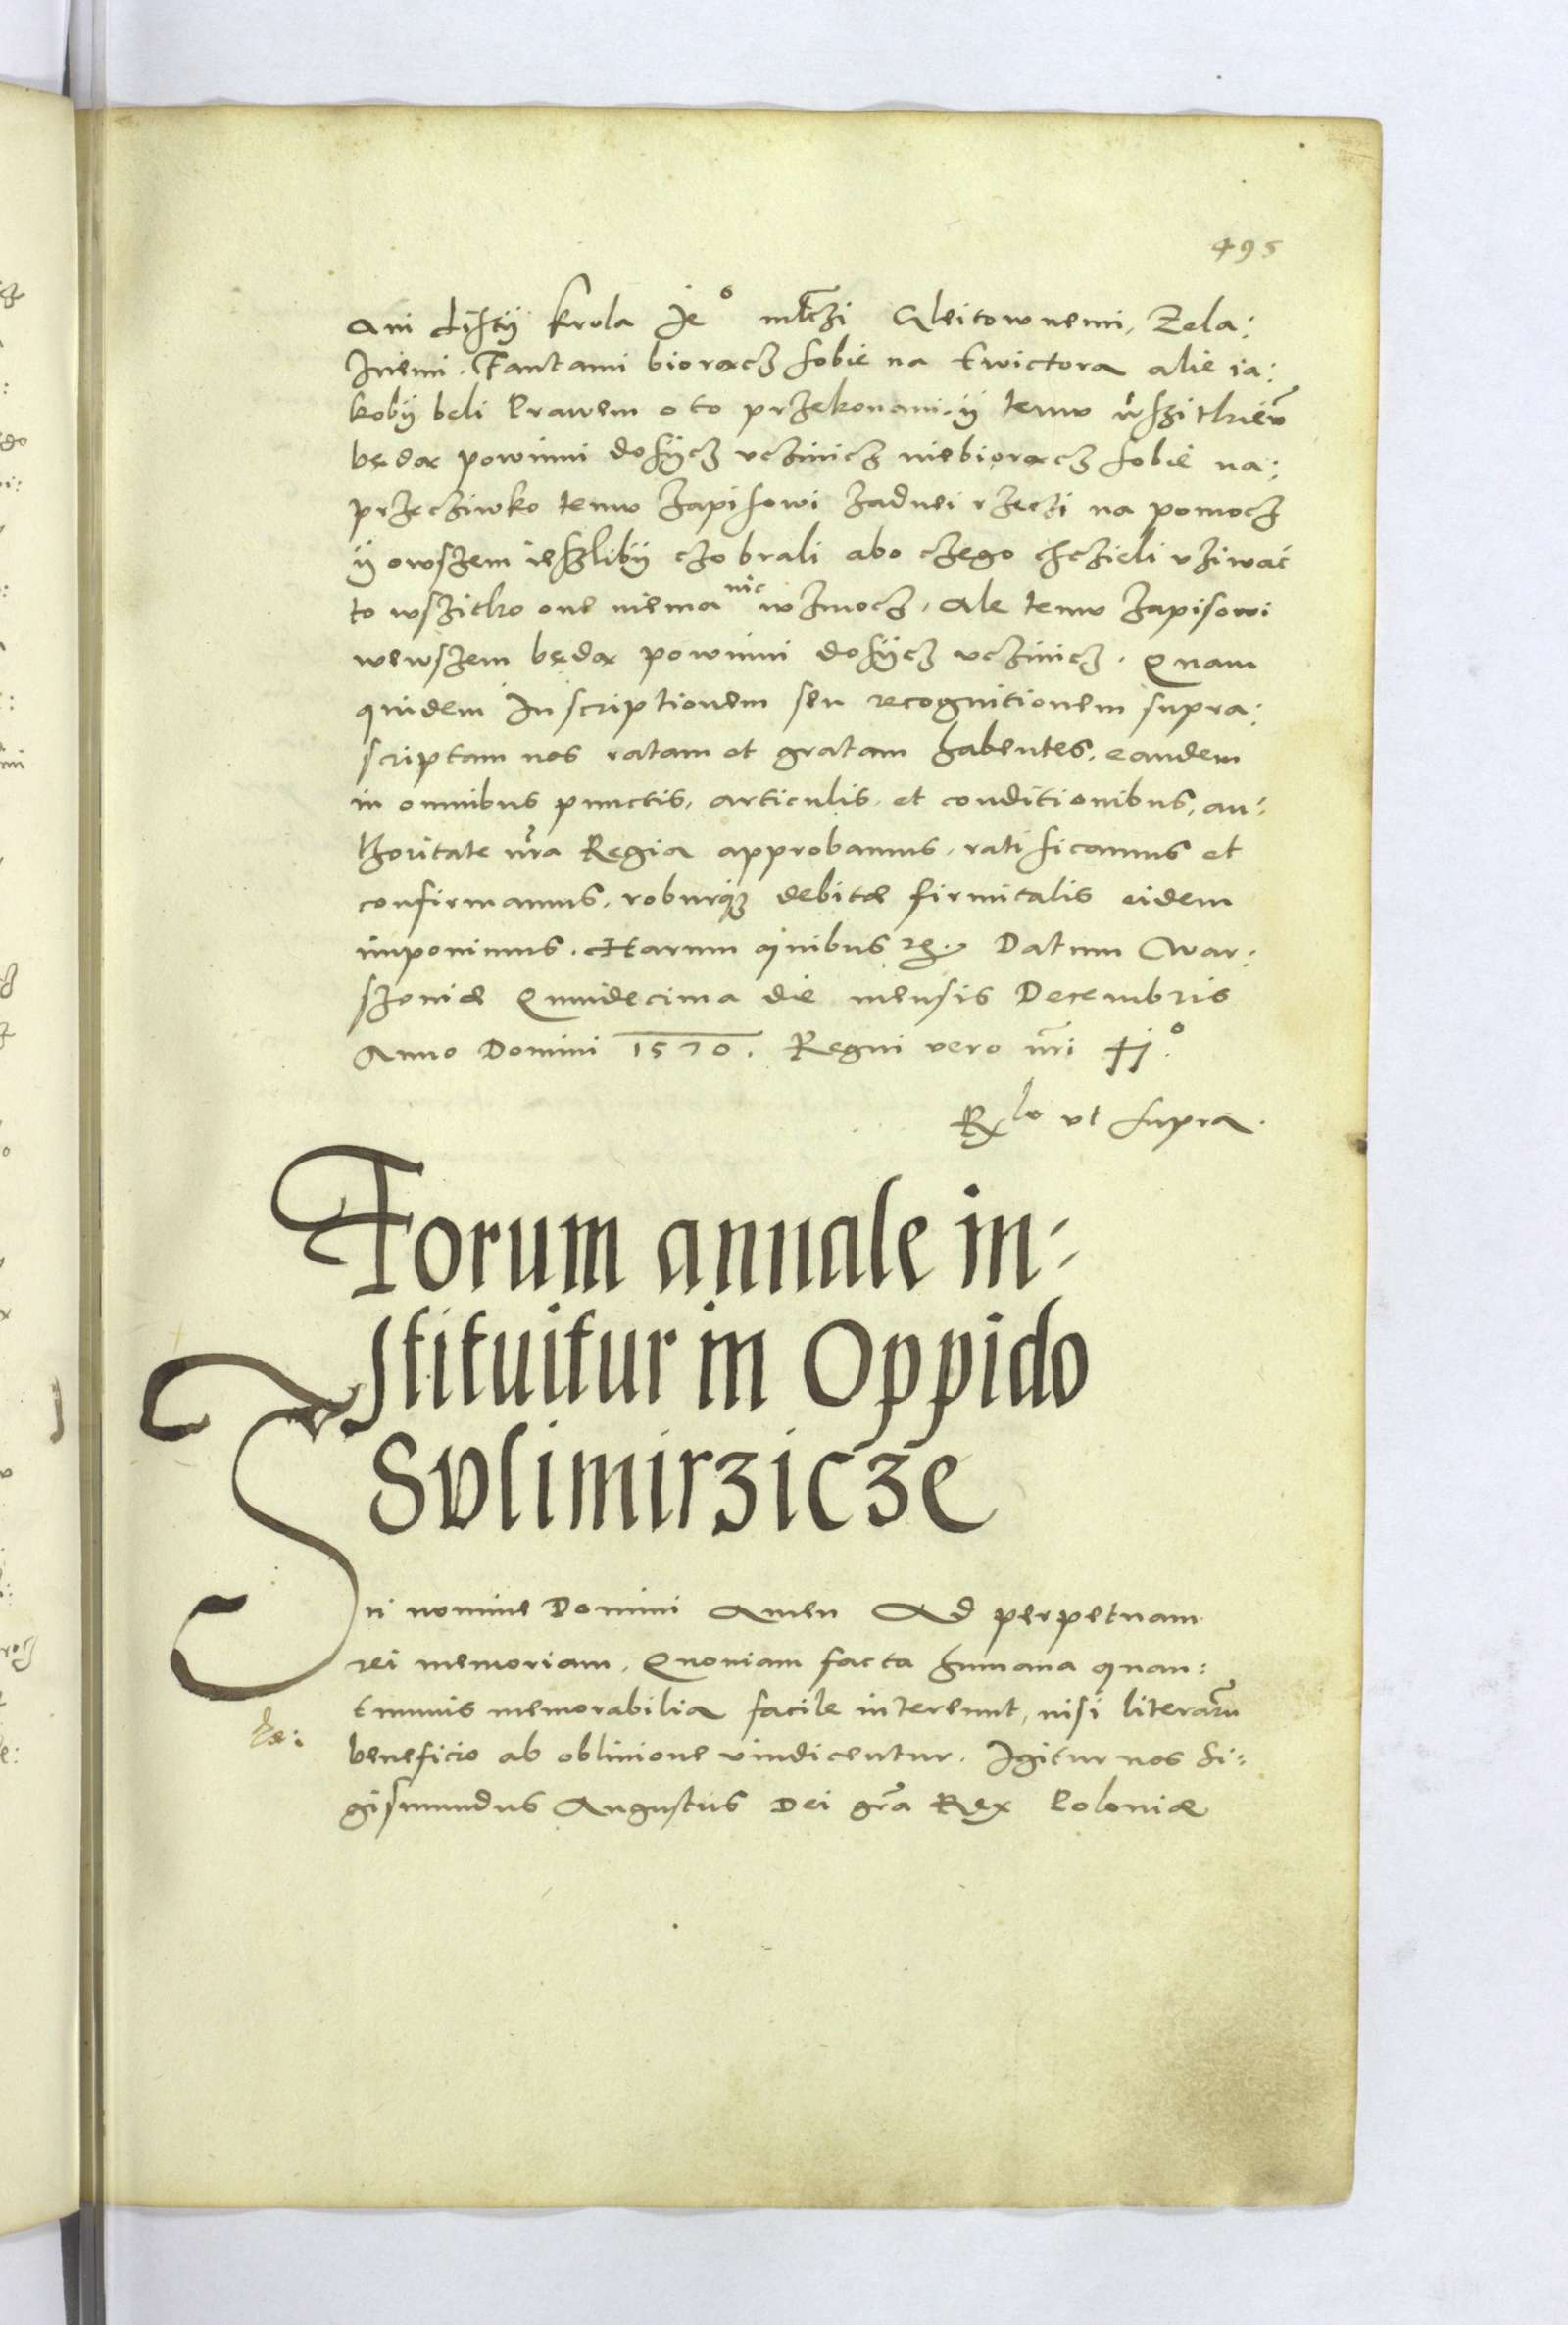 495
Ani Listÿ krola Je° młczi Gleitownemi, Zela:
znemi. Fantami biorącz sobie na Ewictora alie ia:
kobÿ beli Prawem o to przekonani. ÿ temu wszithkiem
będą powinni dosÿcz vczinicz niebiorącz sobie na:
przecziwko temu zapisowi zadnei rzeczi na pomocz
ÿ owszem ieszlibÿ czo brali abo czego chczieli vziwać
to wszitko one niema nic wzmocz, Ale temu zapisowi
wewszem będą powinni dosÿcz vczinicz. Quam
quidem Inscriptionem seu recognitionem supra:
scriptam nos ratam et gratam habentes, eandem
in omnibus punctis, articulis, et conditionibus, au:
thoritate nra Regia approbamus, ratificamus et
confirmamus, roburq; debitæ firmitatis eidem
imponimus. Harum quibus etc. Datum War:
szoviæ Quindecima die mensis Decembris
Anno Domini 1570. Regni vero nri
Rlo vt supra.
Forum annale in-
stituitur in Oppido
Svlimirzicze
In nomine Domini Amen Ad perpetuam
rei memoriam. Quoniam facta humana quan:
tumuis memorabilia facile intereunt, nisi literaru
beneficio ab obliuione vindicentur. Igitur nos Si:
gismundus Augustus Dei gra Rex Poloniæ